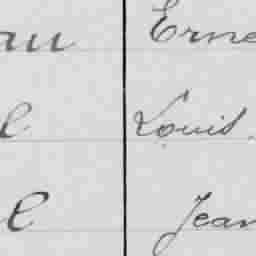 au Erne
l Louis.
e Jean